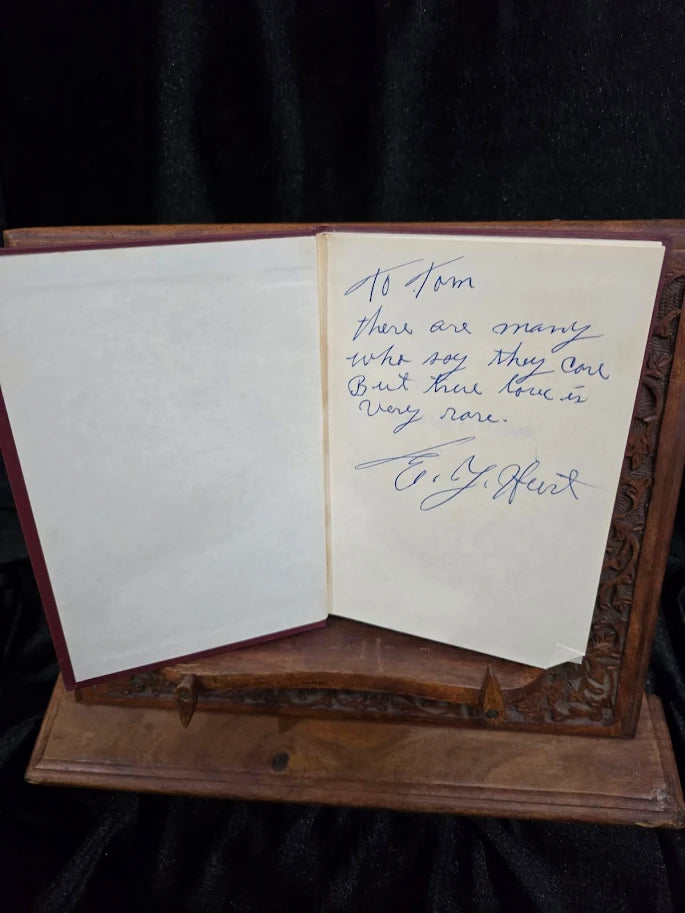 To Tom
there are many
who say they care
But there love is
very rare.
E. Y. Hurt